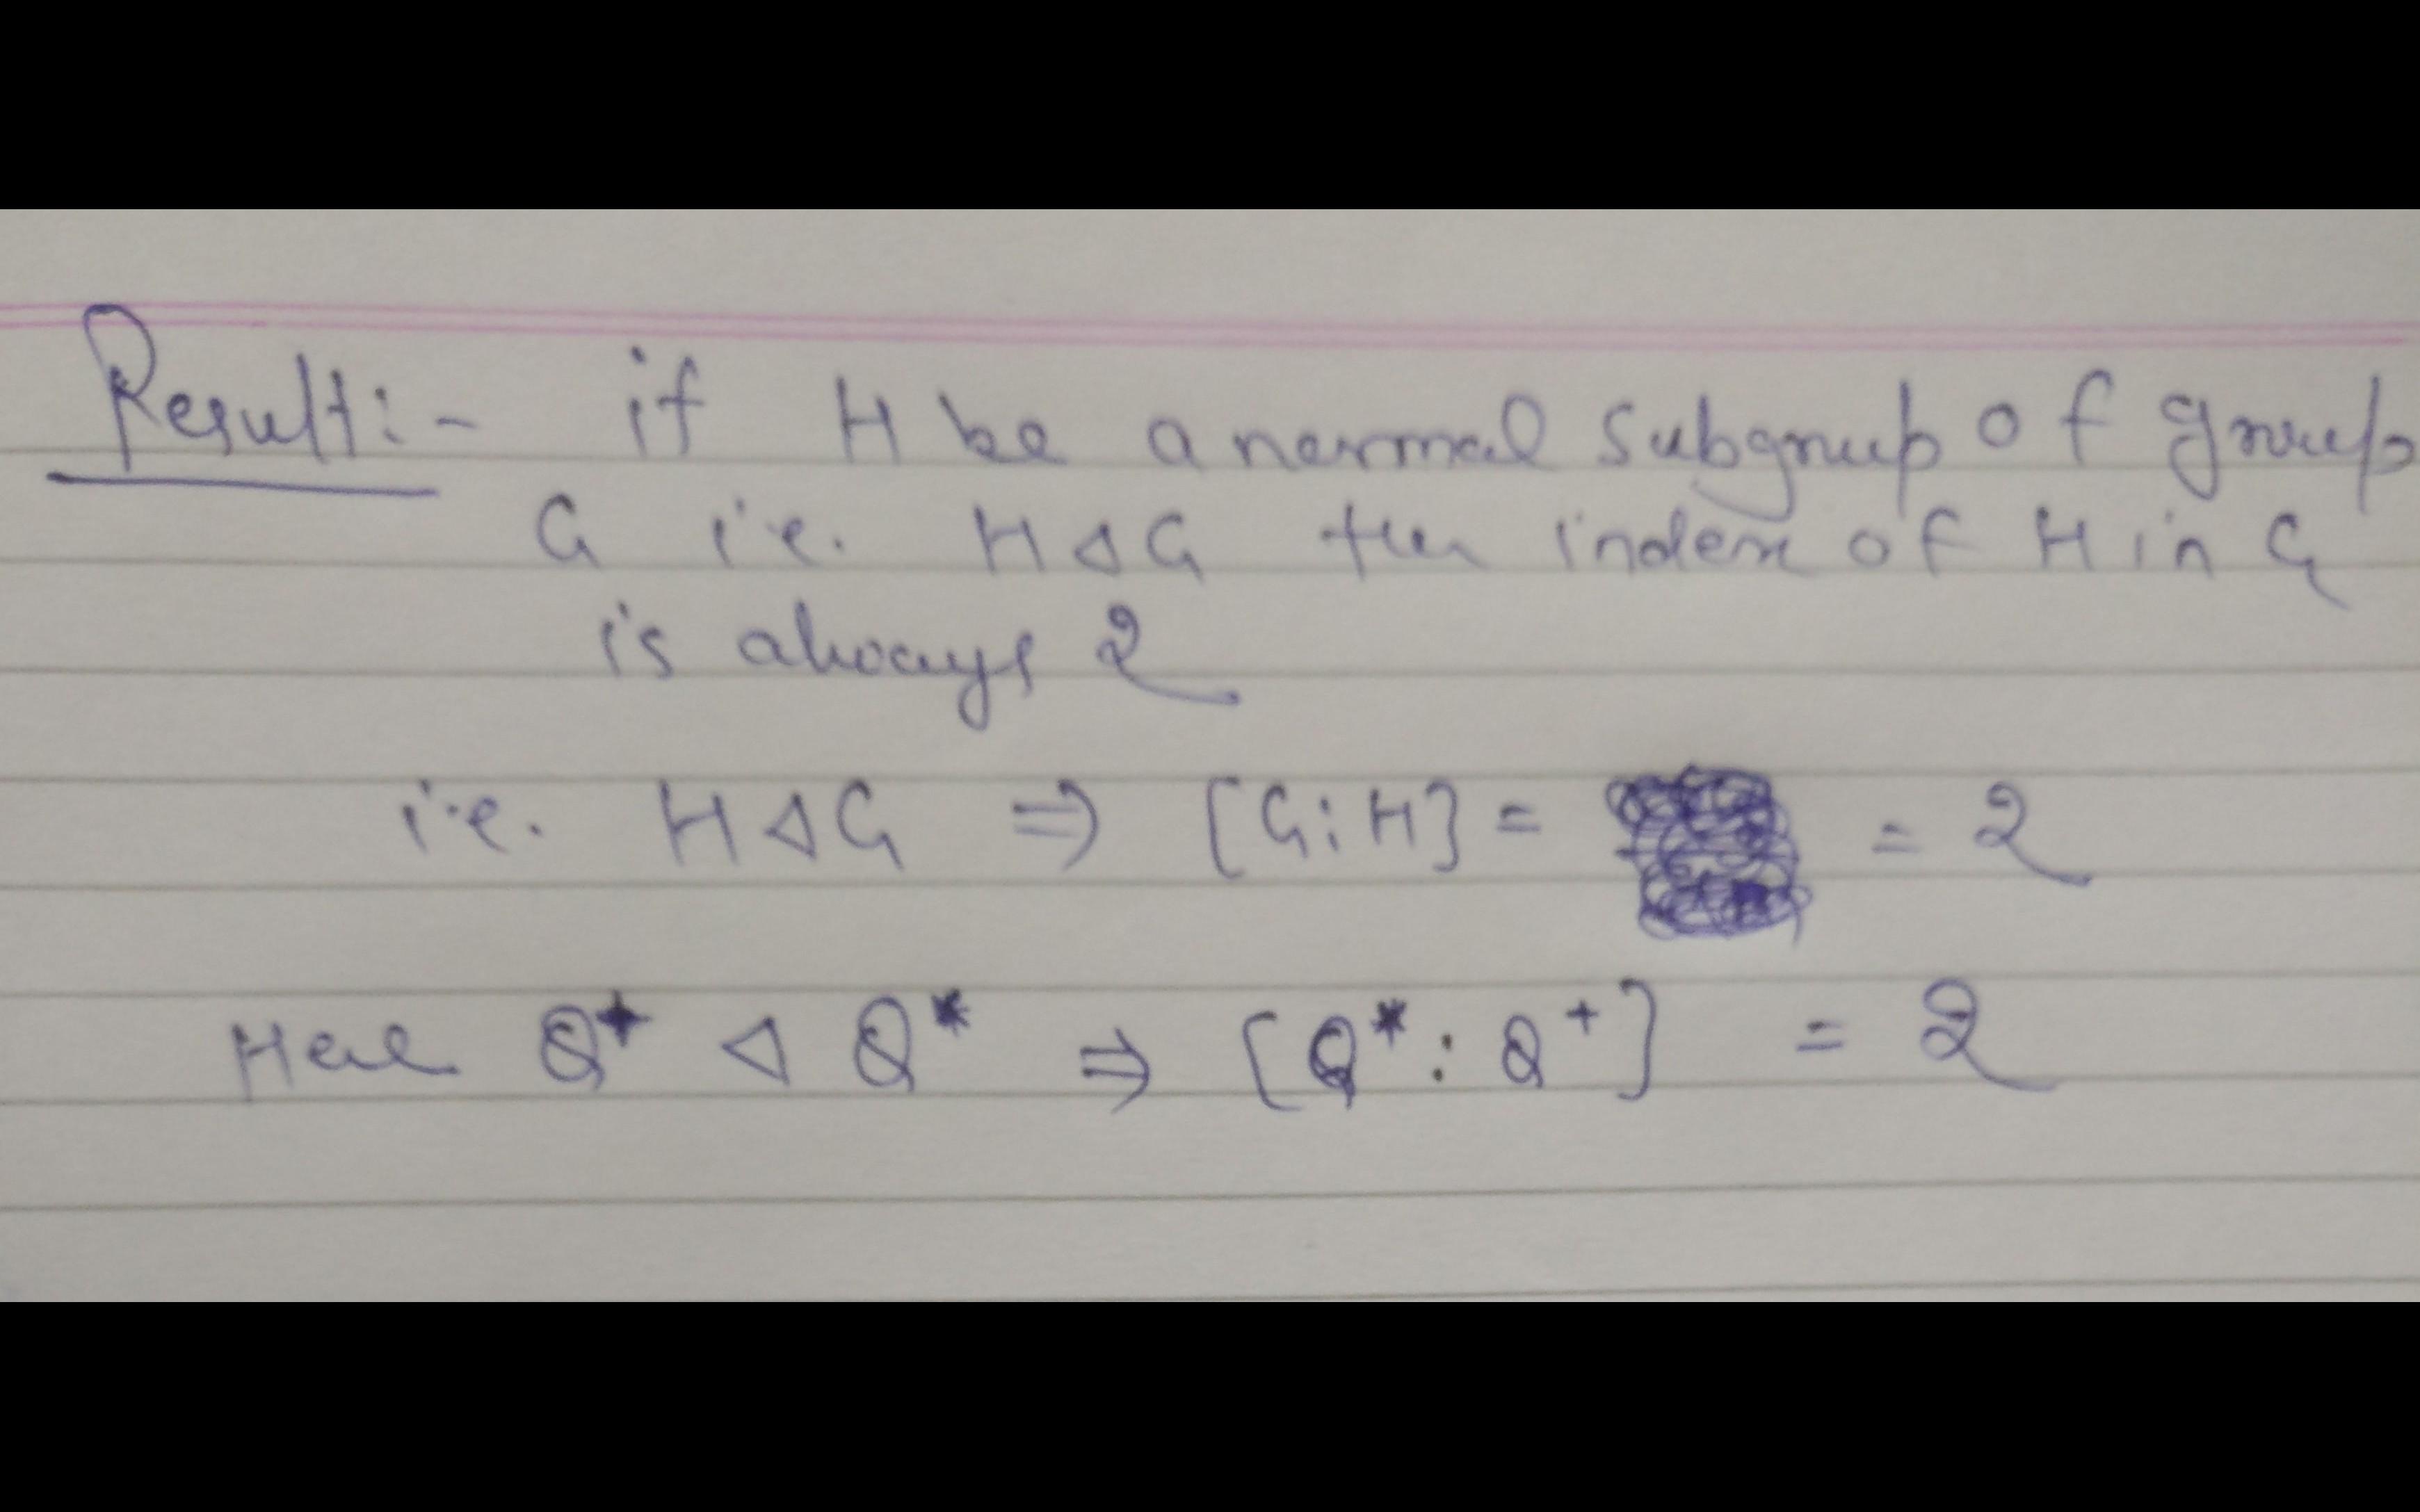 Result:- if H be a normal subgroup of group
G i.e. H ⊲ G then index of H in G
is always 2
i.e. H ⊲ G ⇒ [G:H] = = 2
Here Q⁺ ⊲ Q* ⇒ [Q* : Q⁺] = 2